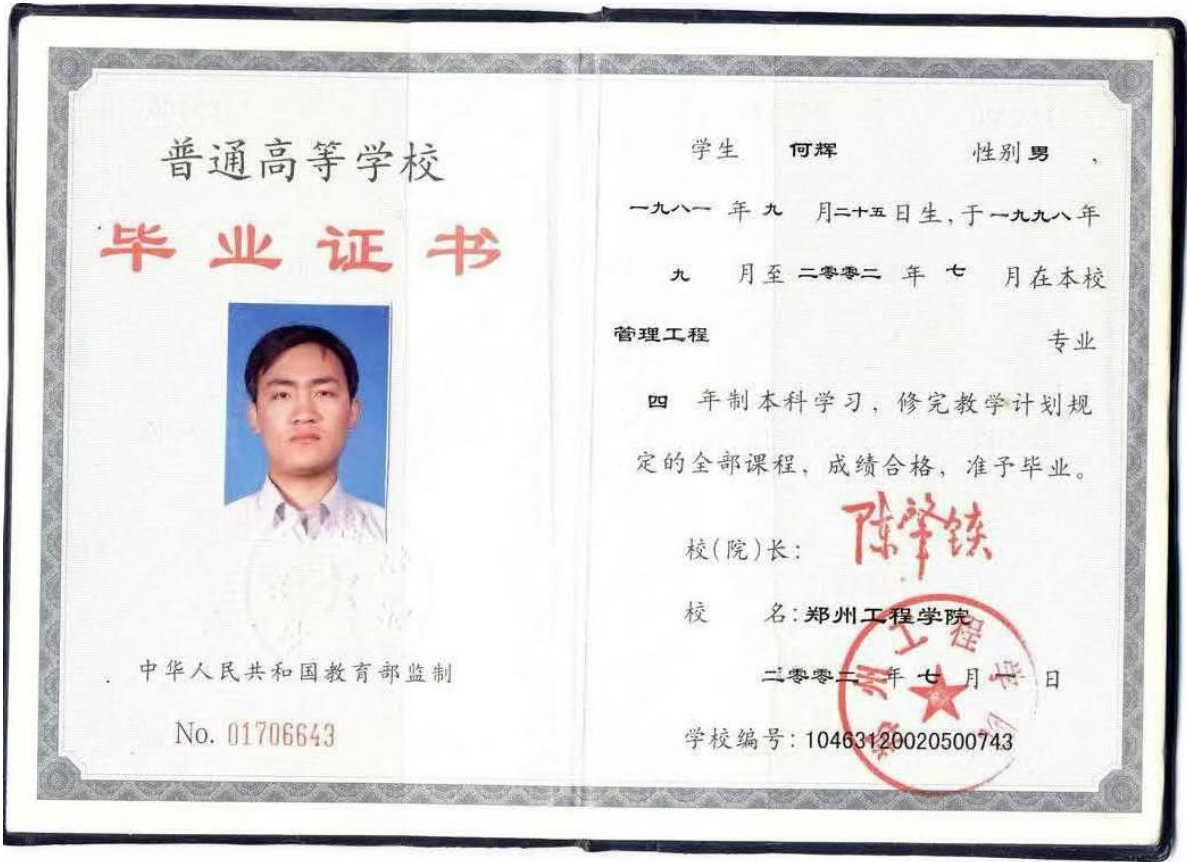 普通高等学校
毕业证书
中华人民共和国教育部监制
No. 01706643
学生 何辉 性别 男 ,
一九八一 年 九 月 二十五 日生,于 一九九八 年
九 月至 二零零二 年 七 月在本校
管理工程 专业
四 年制本科学习，修完教学计划规
定的全部课程，成绩合格，准予毕业。
校(院)长: 陈肇锬
校 名: 郑州工程学院
二零零二 年 七 月 一 日
学校编号: 10463120020500743
郑州工程学院